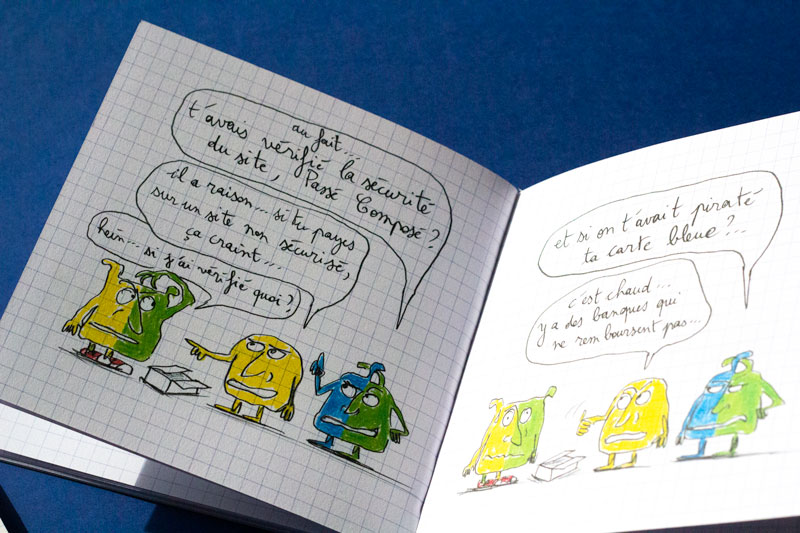 au fait...
t'avais vérifié la sécurité
du site, Passé Composé ?
il a raison... si tu payes
sur un site non sécurisé,
ça craint...
hein... si j'ai vérifié quoi ?
et si on t'avait piraté
ta carte bleue ?...
c'est chaud...
y a des banques qui
ne remboursent pas...